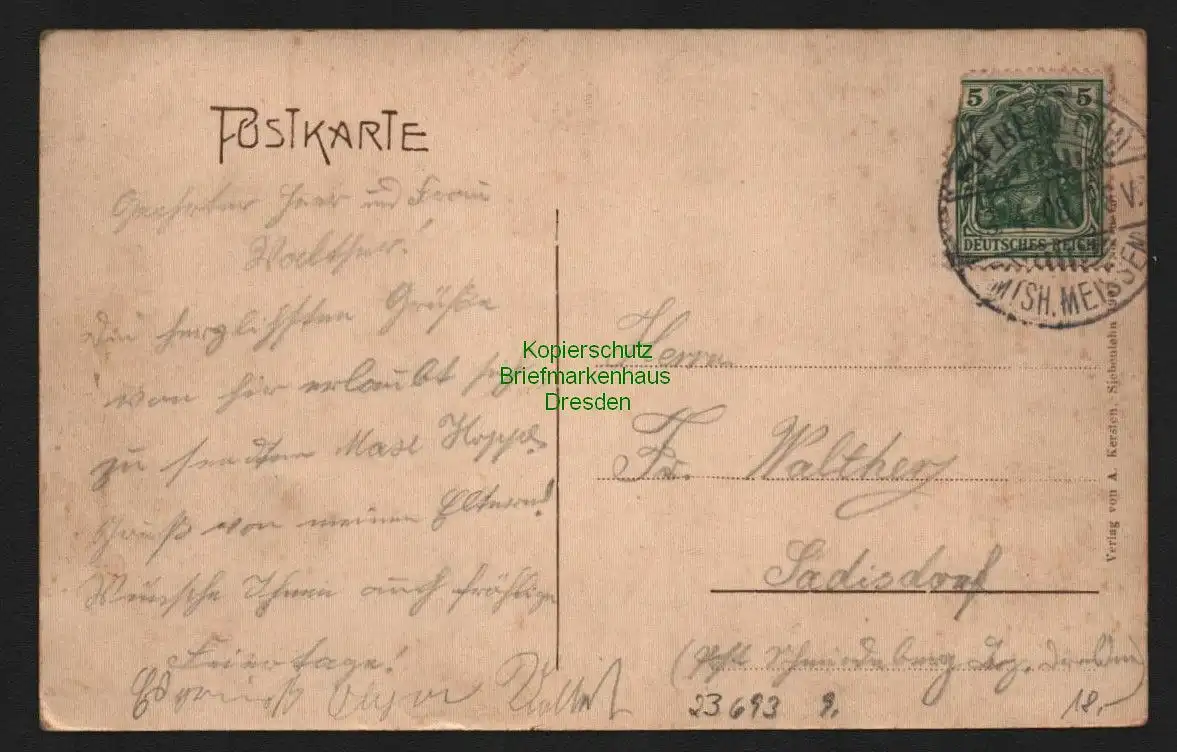 POSTKARTE
5 5
DEUTSCHES REICH
V.
AMTSH. MEISSEN
Geehrter Herr und Frau
Walther!
Die herzlichsten Grüße
von hir erlaubt sich
zu senden Max
Gruß von meinen Eltern!
Wünsche Ihnen auch fröhliche
Feiertage!
Es grüßt
Kopierschutz
Briefmarkenhaus
Dresden
Herrn
Fr. Walther
Sadisdorf
(Post Schmiedeberg Bez. Dresden)
23693 9. 18.-
Verlag von A. Kersten, Siebenlehn